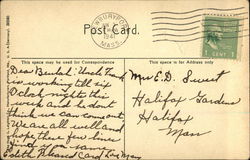 NEWBURYPORT
MASS.
1941
Post Card.
1 CENT 1
This space may be used for Correspondence
This space is for Address only
Dear Beulah: Uncle Frank
is working till six
O clock nights this
week and he dont
think we can come out
We are all well and
hope these few lines
find you same
Edith. Heard Card
Mrs E. D. Sweet
Halifax Gardens
Halifax
Mass